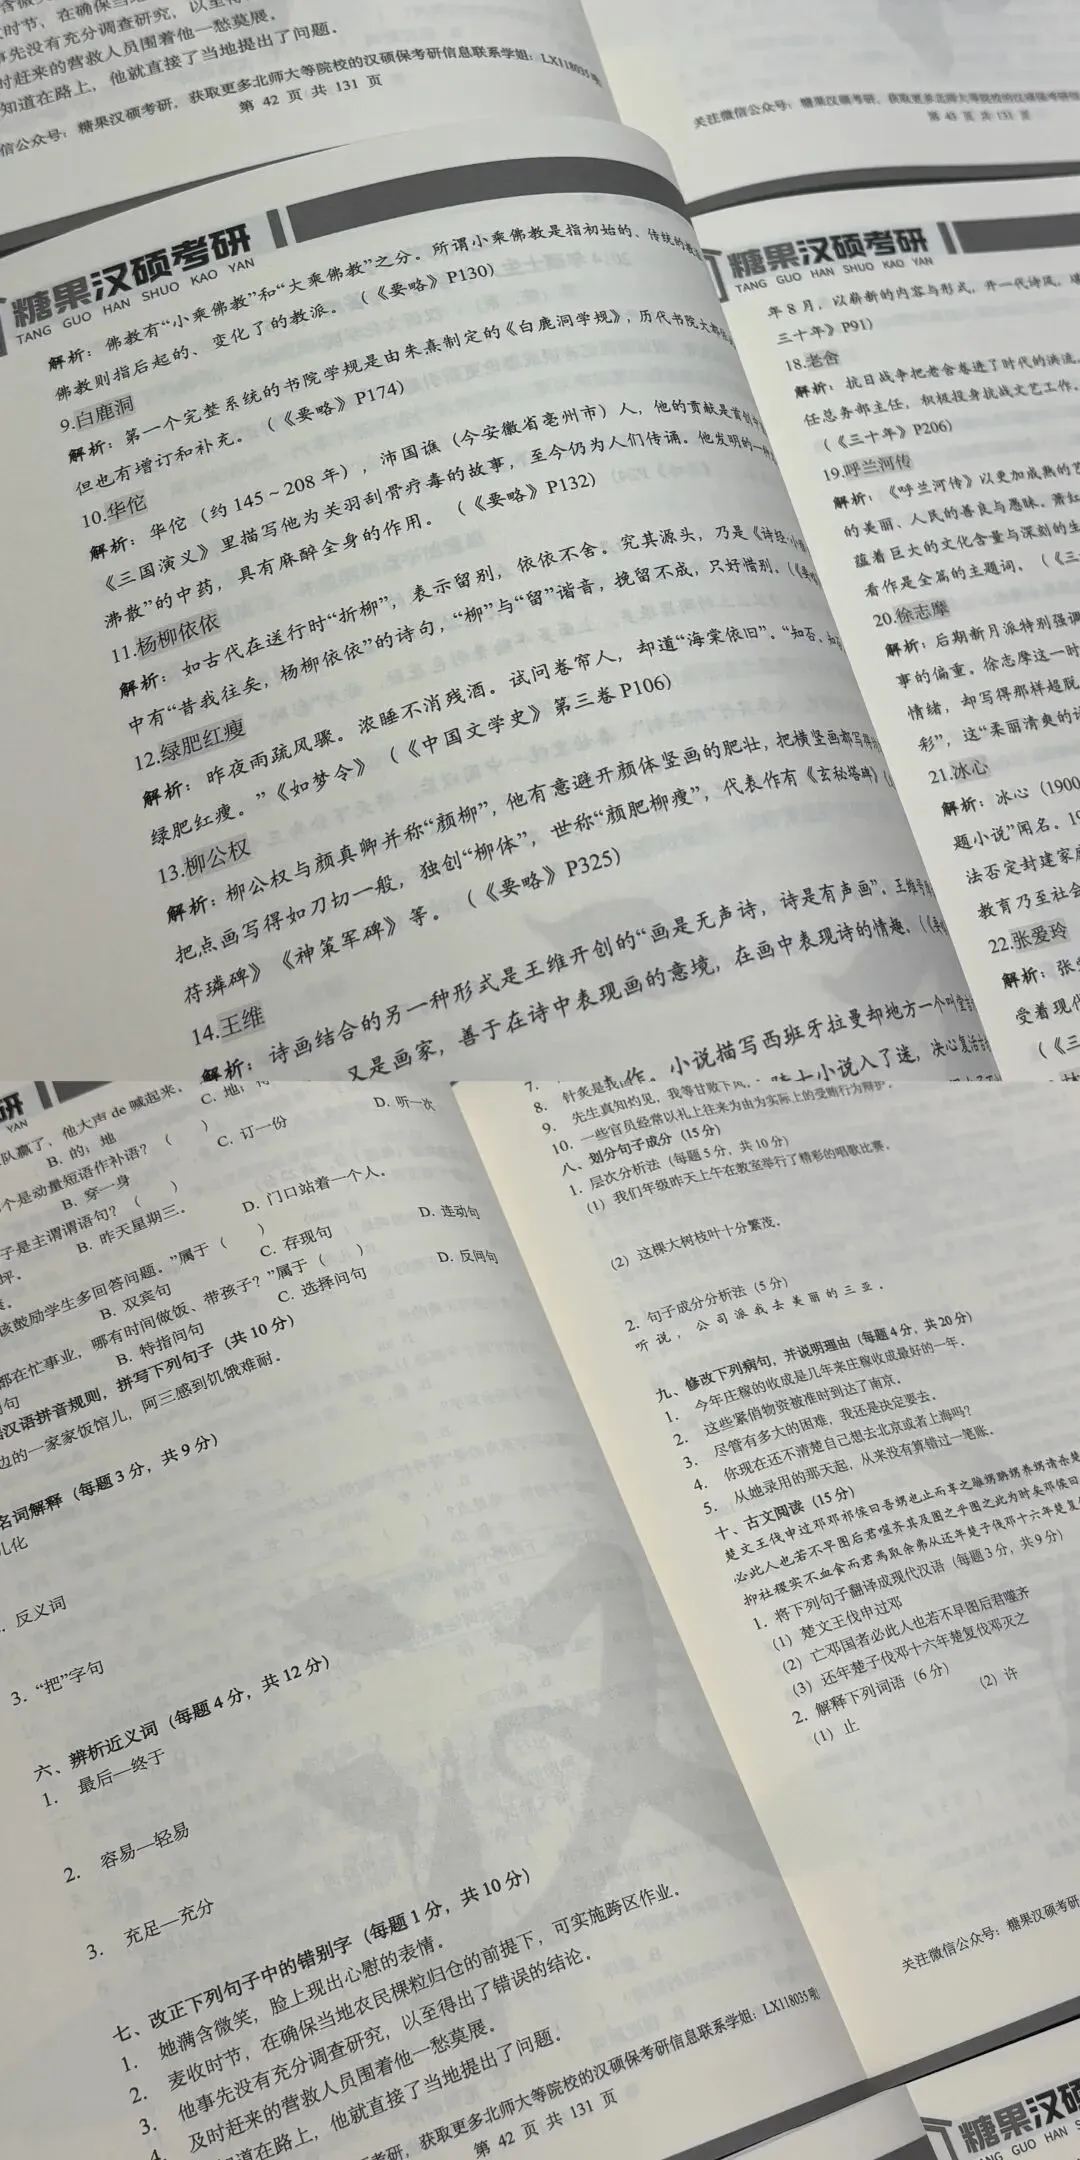 时节，在确保当地
事先没有充分调查研究，以至得
时赶来的营救人员围着他一愁莫展。
知道在路上，他就直接了当地提出了问题。
信公众号：糖果汉硕考研，获取更多北师大等院校的汉硕保考研信息联系学姐：LX118035啦
第 42 页 共 131 页
关注微信公众号：糖果汉硕考研，获取更多北师大等院校的汉硕保考研信
第 43 页 共 131 页
糖果汉硕考研
TANG GUO HAN SHUO KAO YAN
解析：佛教有“小乘佛教”和“大乘佛教”之分。所谓小乘佛教是指初始的、传统的
佛教则指后起的、变化了的教派。（《要略》P130）
9.白鹿洞
解析：第一个完整系统的书院学规是由朱熹制定的《白鹿洞学规》，历代书院大都
但也有增订和补充。（《要略》P174）
10.华佗
解析：华佗（约 145～208 年），沛国谯（今安徽省亳州市）人，他的贡献是首创
《三国演义》里描写他为关羽刮骨疗毒的故事，至今仍为人们传诵。他发明的一种
沸散”的中药，具有麻醉全身的作用。（《要略》P132）
11.杨柳依依
解析：如古代在送行时“折柳”，表示留别，依依不舍。究其源头，乃是《诗经·小
中有“昔我往矣，杨柳依依”的诗句，“柳”与“留”谐音，挽留不成，只好惜别。
12.绿肥红瘦
解析：昨夜雨疏风骤。浓睡不消残酒。试问卷帘人，却道“海棠依旧”。“知否，
绿肥红瘦。”《如梦令》（《中国文学史》第三卷 P106）
13.柳公权
解析：柳公权与颜真卿并称“颜柳”，他有意避开颜体竖画的肥壮，把横竖画都写得
把点画写得如刀切一般，独创“柳体”，世称“颜肥柳瘦”，代表作有《玄秘塔碑》
苻璘碑》《神策军碑》等。（《要略》P325）
14.王维
解析：诗画结合的另一种形式是王维开创的“画是无声诗，诗是有声画”。王维
又是画家，善于在诗中表现画的意境，在画中表现诗的情趣。
作。小说描写西班牙拉曼却地方一个叫
骑士小说入了迷，决心复活
糖果汉硕考研
TANG GUO HAN SHUO KAO YAN
年 8 月，以崭新的内容与形式，开一代诗风，
三十年》P91）
18.老舍
解析：抗日战争把老舍卷进了时代的洪流，
任总务部主任，积极投身抗战文艺工作。
（《三十年》P206）
19.呼兰河传
解析：《呼兰河传》以更加成熟的艺
的美丽、人民的善良与愚昧。萧红
蕴着巨大的文化含量与深刻的生
看作是全篇的主题词。（《三
20.徐志摩
解析：后期新月派特别强调
事的偏重。徐志摩这一时
情绪，却写得那样超脱
彩”，这“柔丽清爽的诗
21.冰心
解析：冰心（1900
题小说”闻名。19
法否定封建家庭
教育乃至社会
22.张爱玲
解析：张
受着现代
（《三
队赢了，他大声 de 喊起来，
B. 的；地
C. 地；
个是动量短语作补语？（ ）
B. 穿一身
C. 订一份
D. 听一次
子是主谓谓语句？（ ）
坪。
B. 昨天星期三。
D. 门口站着一个人。
该鼓励学生多回答问题。”属于（ ）
B. 双宾句
C. 存现句
D. 连动句
都在忙事业，哪有时间做饭、带孩子？”属于（ ）
B. 特指问句
C. 选择问句
D. 反问句
汉语拼音规则，拼写下列句子（共 10 分）
边的一家家饭馆儿，阿三感到饥饿难耐。
名词解释（每题 3 分，共 9 分）
儿化
反义词
3. “把”字句
六、辨析近义词（每题 4 分，共 12 分）
1. 最后—终于
2. 容易—轻易
3. 充足—充分
七、改正下列句子中的错别字（每题 1 分，共 10 分）
1. 她满含微笑，脸上现出心慰的表情。
2. 麦收时节，在确保当地农民棵粒归仓的前提下，可实施跨区作业。
3. 他事先没有充分调查研究，以至得出了错误的结论。
4. 及时赶来的营救人员围着他一愁莫展。
知道在路上，他就直接了当地提出了问题。
考研，获取更多北师大等院校的汉硕保考研信息联系学姐：LX118035啦
第 42 页 共 131 页
7.
8. 针灸是我
9. 先生真知灼见，我等甘败下风。
10. 一些官员经常以礼上往来为由为实际上的受贿行为辩护。
八、划分句子成分（15 分）
1. 层次分析法（每题 5 分，共 10 分）
（1）我们年级昨天上午在教室举行了精彩的唱歌比赛。
（2）这棵大树枝叶十分繁茂。
2. 句子成分分析法（5 分）
听说，公司派我去美丽的三亚。
九、修改下列病句，并说明理由（每题 4 分，共 20 分）
1. 今年庄稼的收成是几年来庄稼收成最好的一年。
2. 这些紧俏物资被准时到达了南京。
3. 尽管有多大的困难，我还是决定要去。
4. 你现在还不清楚自己想去北京或者上海吗？
5. 从她录用的那天起，从来没有算错过一笔账。
十、古文阅读（15 分）
楚文王伐申过邓邓祁侯曰吾甥也止而享之雎甥聃甥养甥请杀楚
必此人也若不早图后君噬齐其及图之乎图之此为时矣邓侯曰
抑社稷实不血食而君焉取余弗从还年楚子伐邓十六年楚复
1. 将下列句子翻译成现代汉语（每题 3 分，共 9 分）
（1）楚文王伐申过邓
（2）亡邓国者必此人也若不早图后君噬齐
（3）还年楚子伐邓十六年楚复伐邓灭之
2. 解释下列词语（6 分）
（1）止
（2）许
关注微信公众号：糖果汉硕考研
糖果汉硕
TANG GUO HAN SH